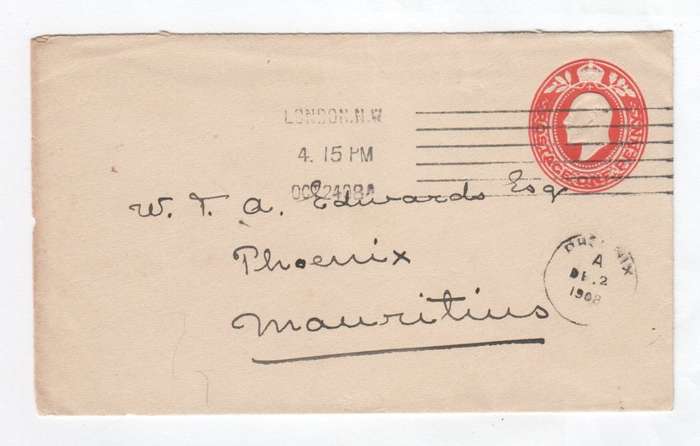 LONDON.N.W
4. 15 PM
OCT 24 08A
POSTAGE ONE PENNY
W. T. A. Edwards Esq
Phoenix
Mauritius
PHOENIX
A
DE. 2
1908